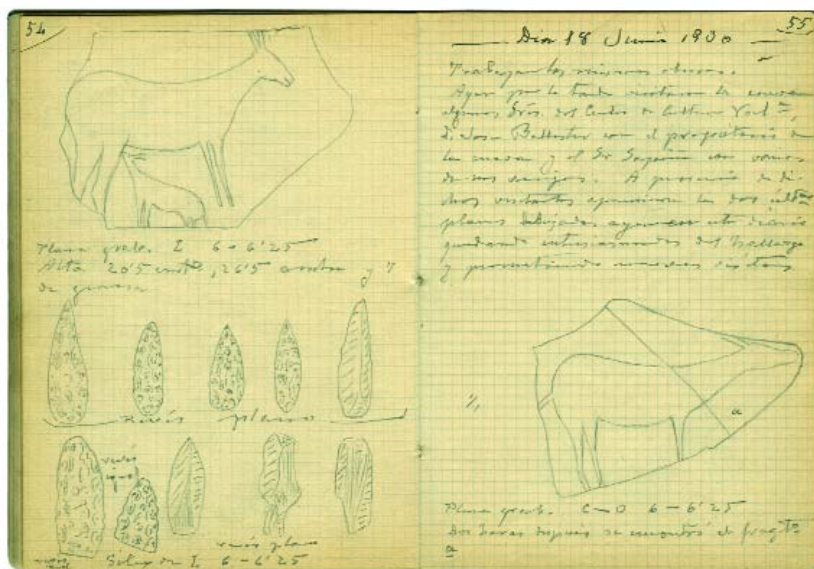 54
Placa grab. I 6-6'25
Alto 20'5 cmts, 26'5 ancho y 7
de grueso
revés plano
revés
igual
revés plano
Silex de I. 6-6'25
55
Dia 18 Junio 1930
Trabajan los mismos obreros.
Ayer por la tarde visitaron la cueva
algunos Srs. del Centro de Cultura Val.na,
D. Jose Ballester con el propietario de
la cueva y el Sr
de sus amigos. A presencia de di-
chos visitantes aparecieron las dos últas
placas dibujadas ayer en este diario
quedando entusiasmados del hallazgo
y prometiendo nuevas visitas
1/1
a
Placa grab. C-D 6-6'25
Dos horas después se encontró el fragto
a